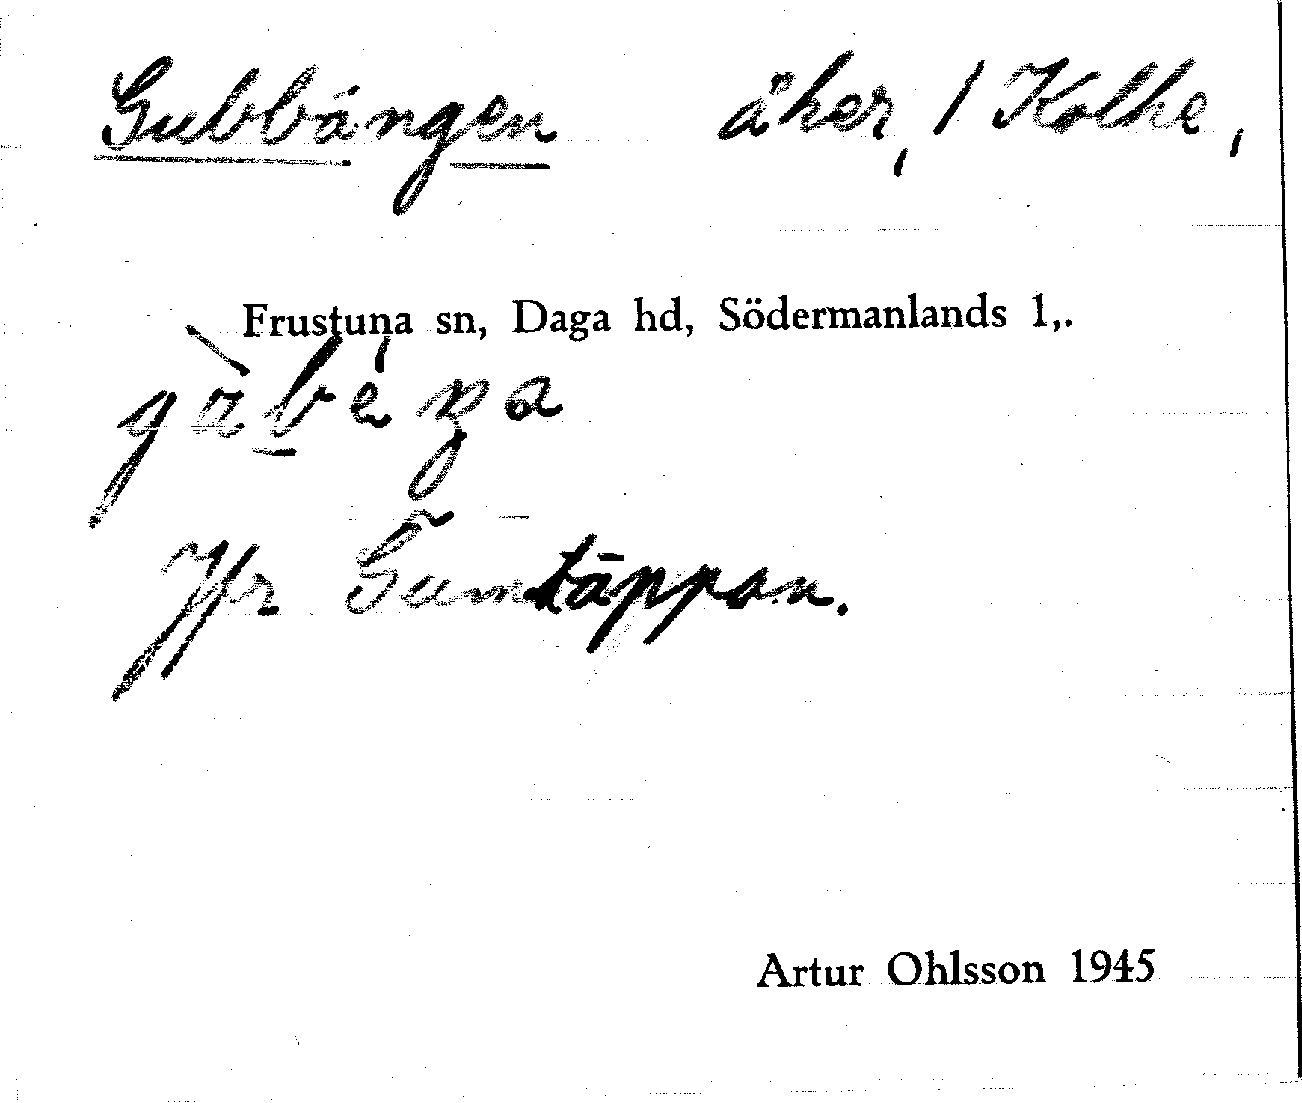 Gubbängen åker, 1 Kolke,
Frustuna sn, Daga hd, Södermanlands l,.
Jfr Gumtäppan.
Artur Ohlsson 1945